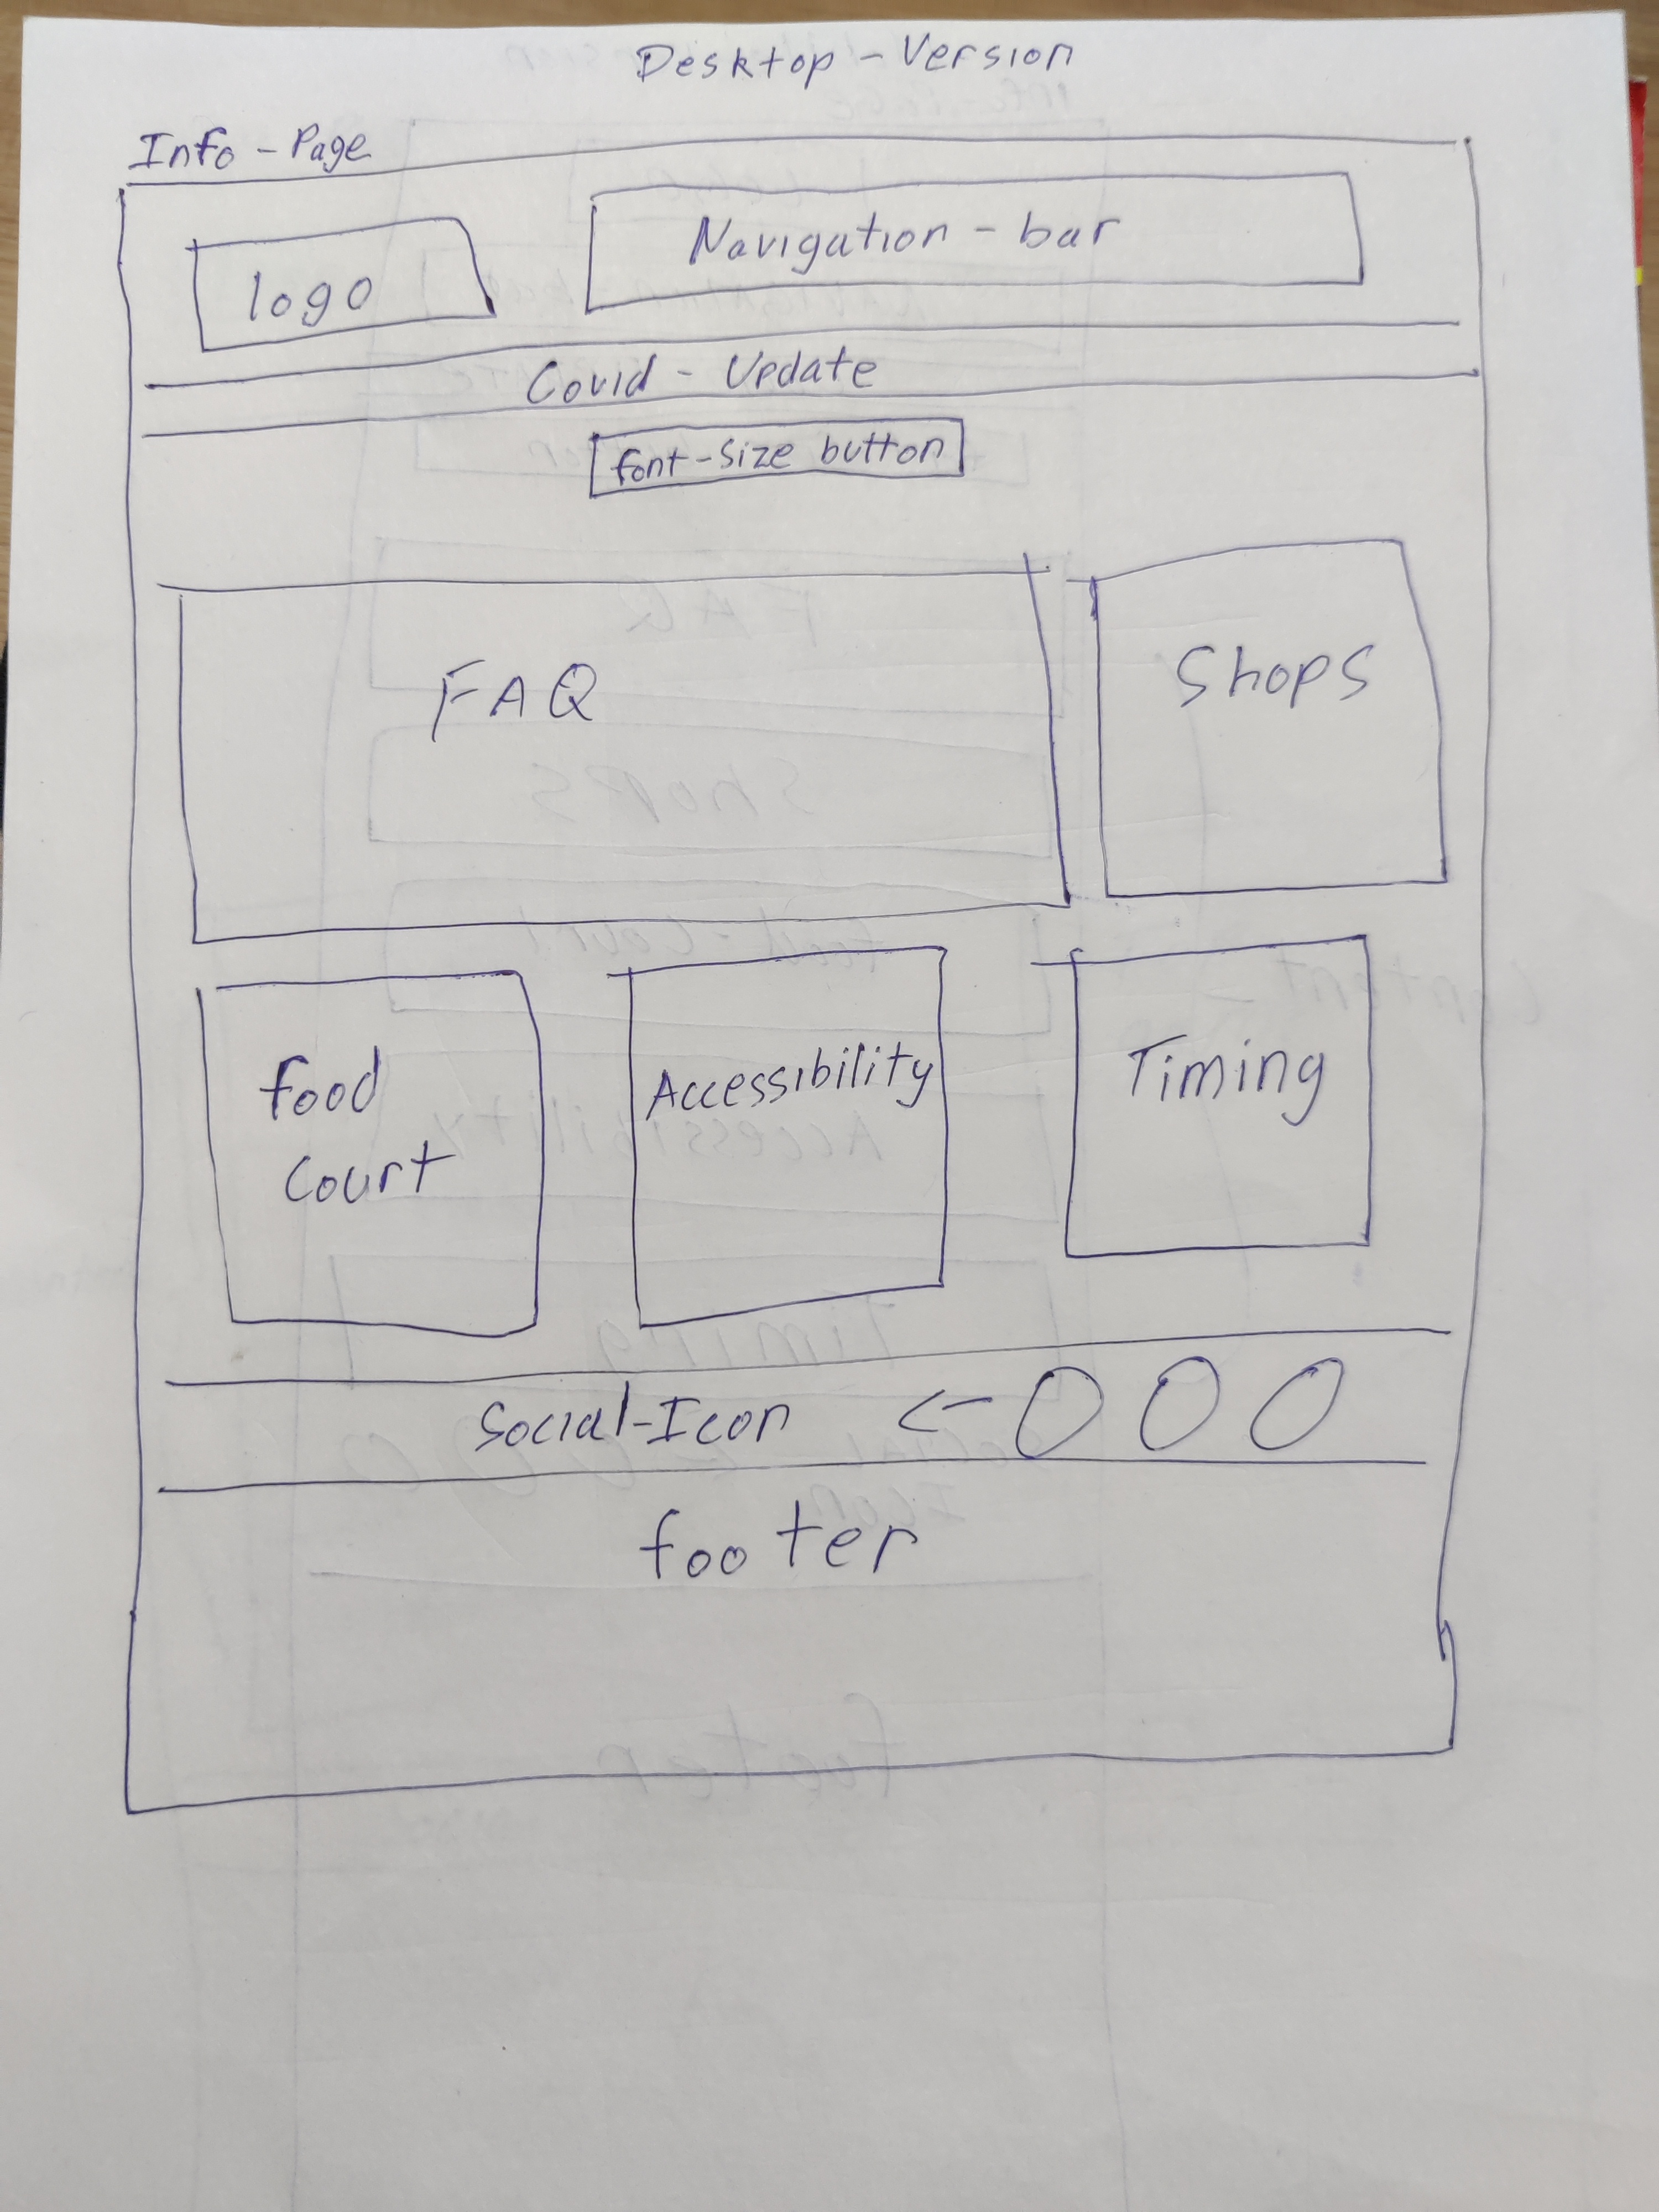 Desktop - Version
Info - Page
logo
Navigation - bar
Covid - Update
font-size button
FAQ
Shops
food
Court
Accessibility
Timing
Social-Icon
footer